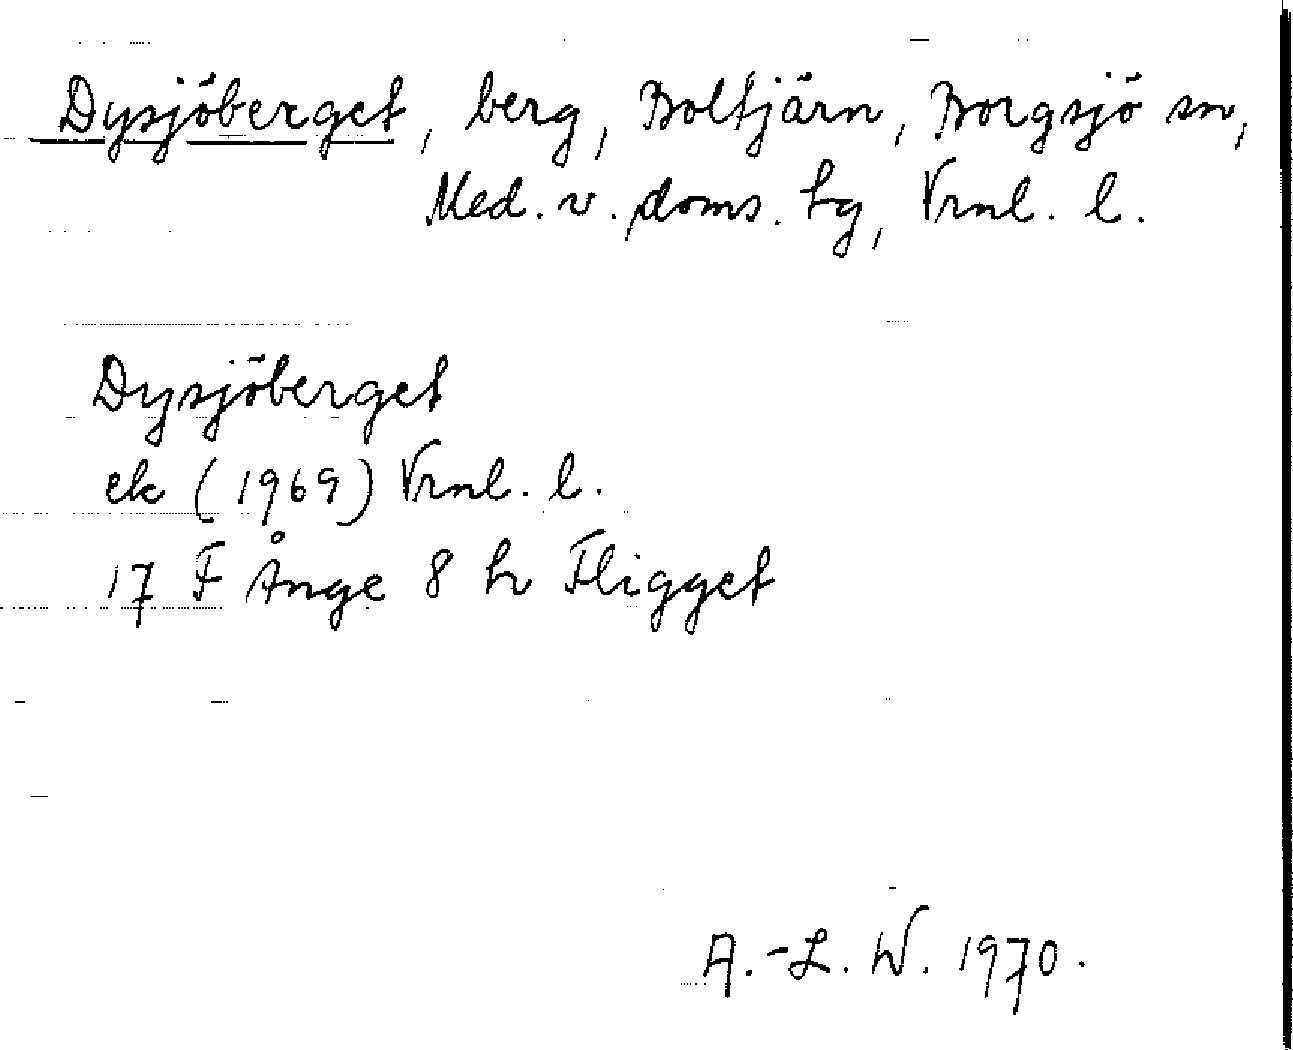 Dysjöberget, berg, Boltjärn, Borgsjö sn,
Med. v. doms. hg, Vrnl. l.
Dysjöberget
ek (1969) Vrnl. l.
17 F Ånge 8 h Fligget
A.-L. W. 1970.